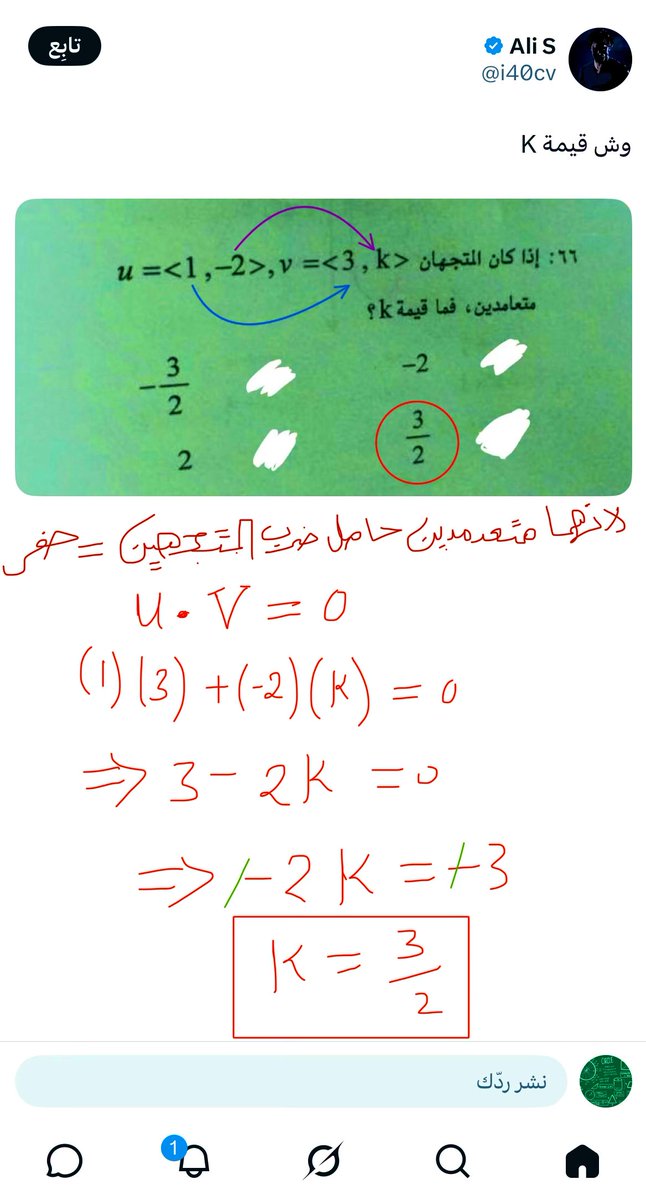 تابِع
Ali S
@i40cv
وش قيمة K
٦٦: إذا كان المتجهان u =<1 ,−2>, v =<3 , k>
متعامدين، فما قيمة k؟
−2
−3/2
3/2
2
لانهما متعدمدين حاصل ضرب المتجهين = صفر
u • v = 0
(1)(3) + (-2)(k) = 0
⇒ 3 − 2k = 0
⇒ −2k = −3
k = 3/2
نشر ردّك
1